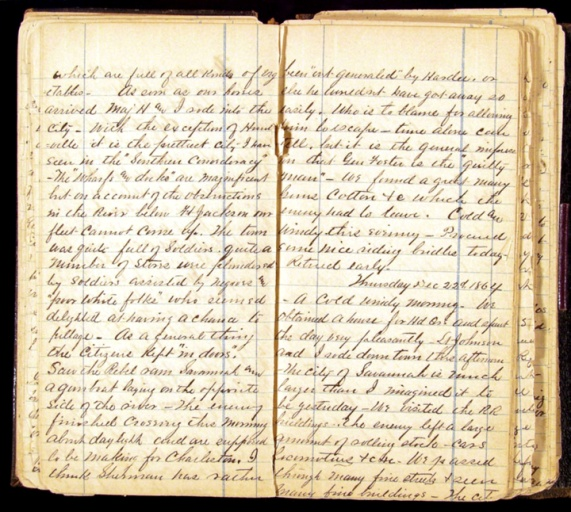 which are full of all kinds of veg
etables - As soon as our horses
arrived Maj H & I rode into the
City - With the exception of Hunts
ville it is the prettiest city I have
seen in the "Southern Confederacy"
- The "Wharfs & docks" are magnificent
but on account of the obstructions
in the River below Ft Jackson our
fleet cannot come up. The town
was quite full of Soldiers. quite a
number of Stores were plundered
by Soldiers assisted by negroes &
"poor white folks" who seemed
delighted at having a chance to
pillage - As a general thing
the Citizens kept "in doors".
Saw the Rebel ram Savannah and
a gunboat laying on the opposite
side of the river - The enemy
finished crossing this morning
about daylight and are supposed
to be making for Charleston. I
think Sherman has rather
been "out generaled" by Hardee. or
else he wouldn't have got away so
easily. Who is to blame for allowing
him to escape - time alone can
tell, but it is the general
on that Gen Foster is the "guilty
man" - We found a great many
Guns Cotton &c which the
enemy had to leave. Cold &
windy this evening - Procured
some nice riding bridles today -
Retired early.
Thursday Dec 22d 1864
- A Cold windy morning - We
obtained a house for Hd Qrs and spent
the day very pleasantly - Lt Johnson
and I rode down town this afternoon
- The City of Savannah is much
larger than I imagined it to
be yesterday - We visited the R.R
buildings - the enemy left a large
amount of rolling stock - cars
locomotives &c &c. We passed
through many fine streets & seen
many fine buildings - The cit